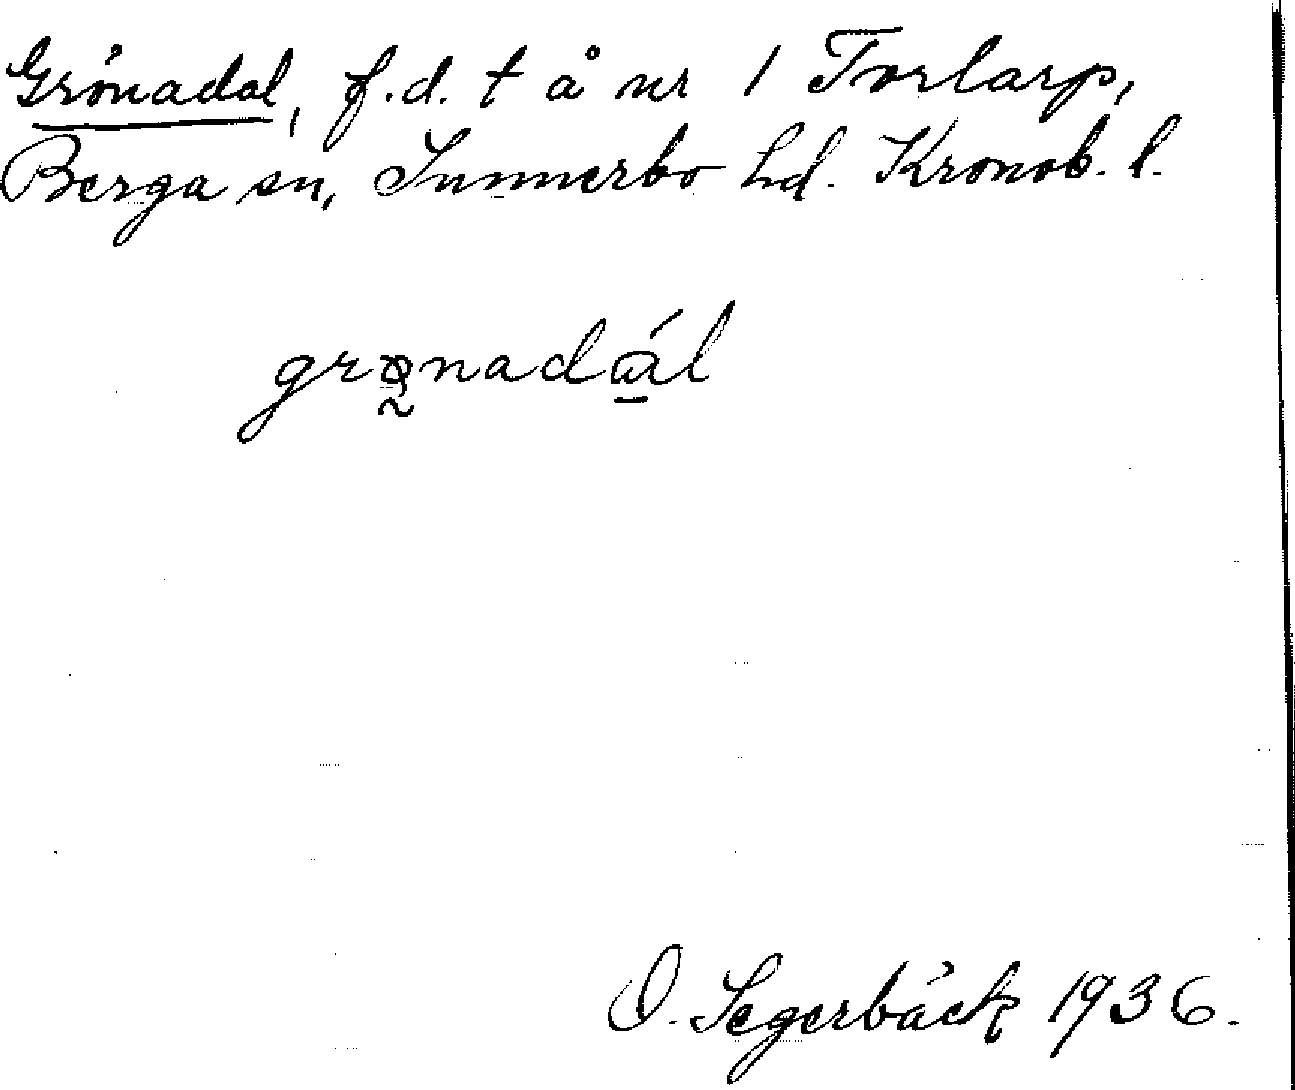 Grönadal, f.d. t å nr 1 Torlarp,
Berga sn, Sunnerbo hd. Kronob. l.
grø̰nadál
O. Segerbäck 1936.